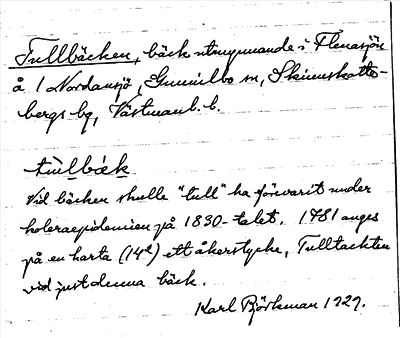 Tullbäcken, bäck utmynnande i Flenasjön
å / Nordansjö, Gunnilbo sn, Skinnskatte-
bergs bg, Västmanl. l.
tùlbæk
Vid bäcken skulle "tull" ha förevarit under
koleraepidemien på 1830-talet. 1781 anges
på en karta (14e) ett åkerstycke, Tulltäckten
vid just denna bäck.
Karl Björkman 1929.